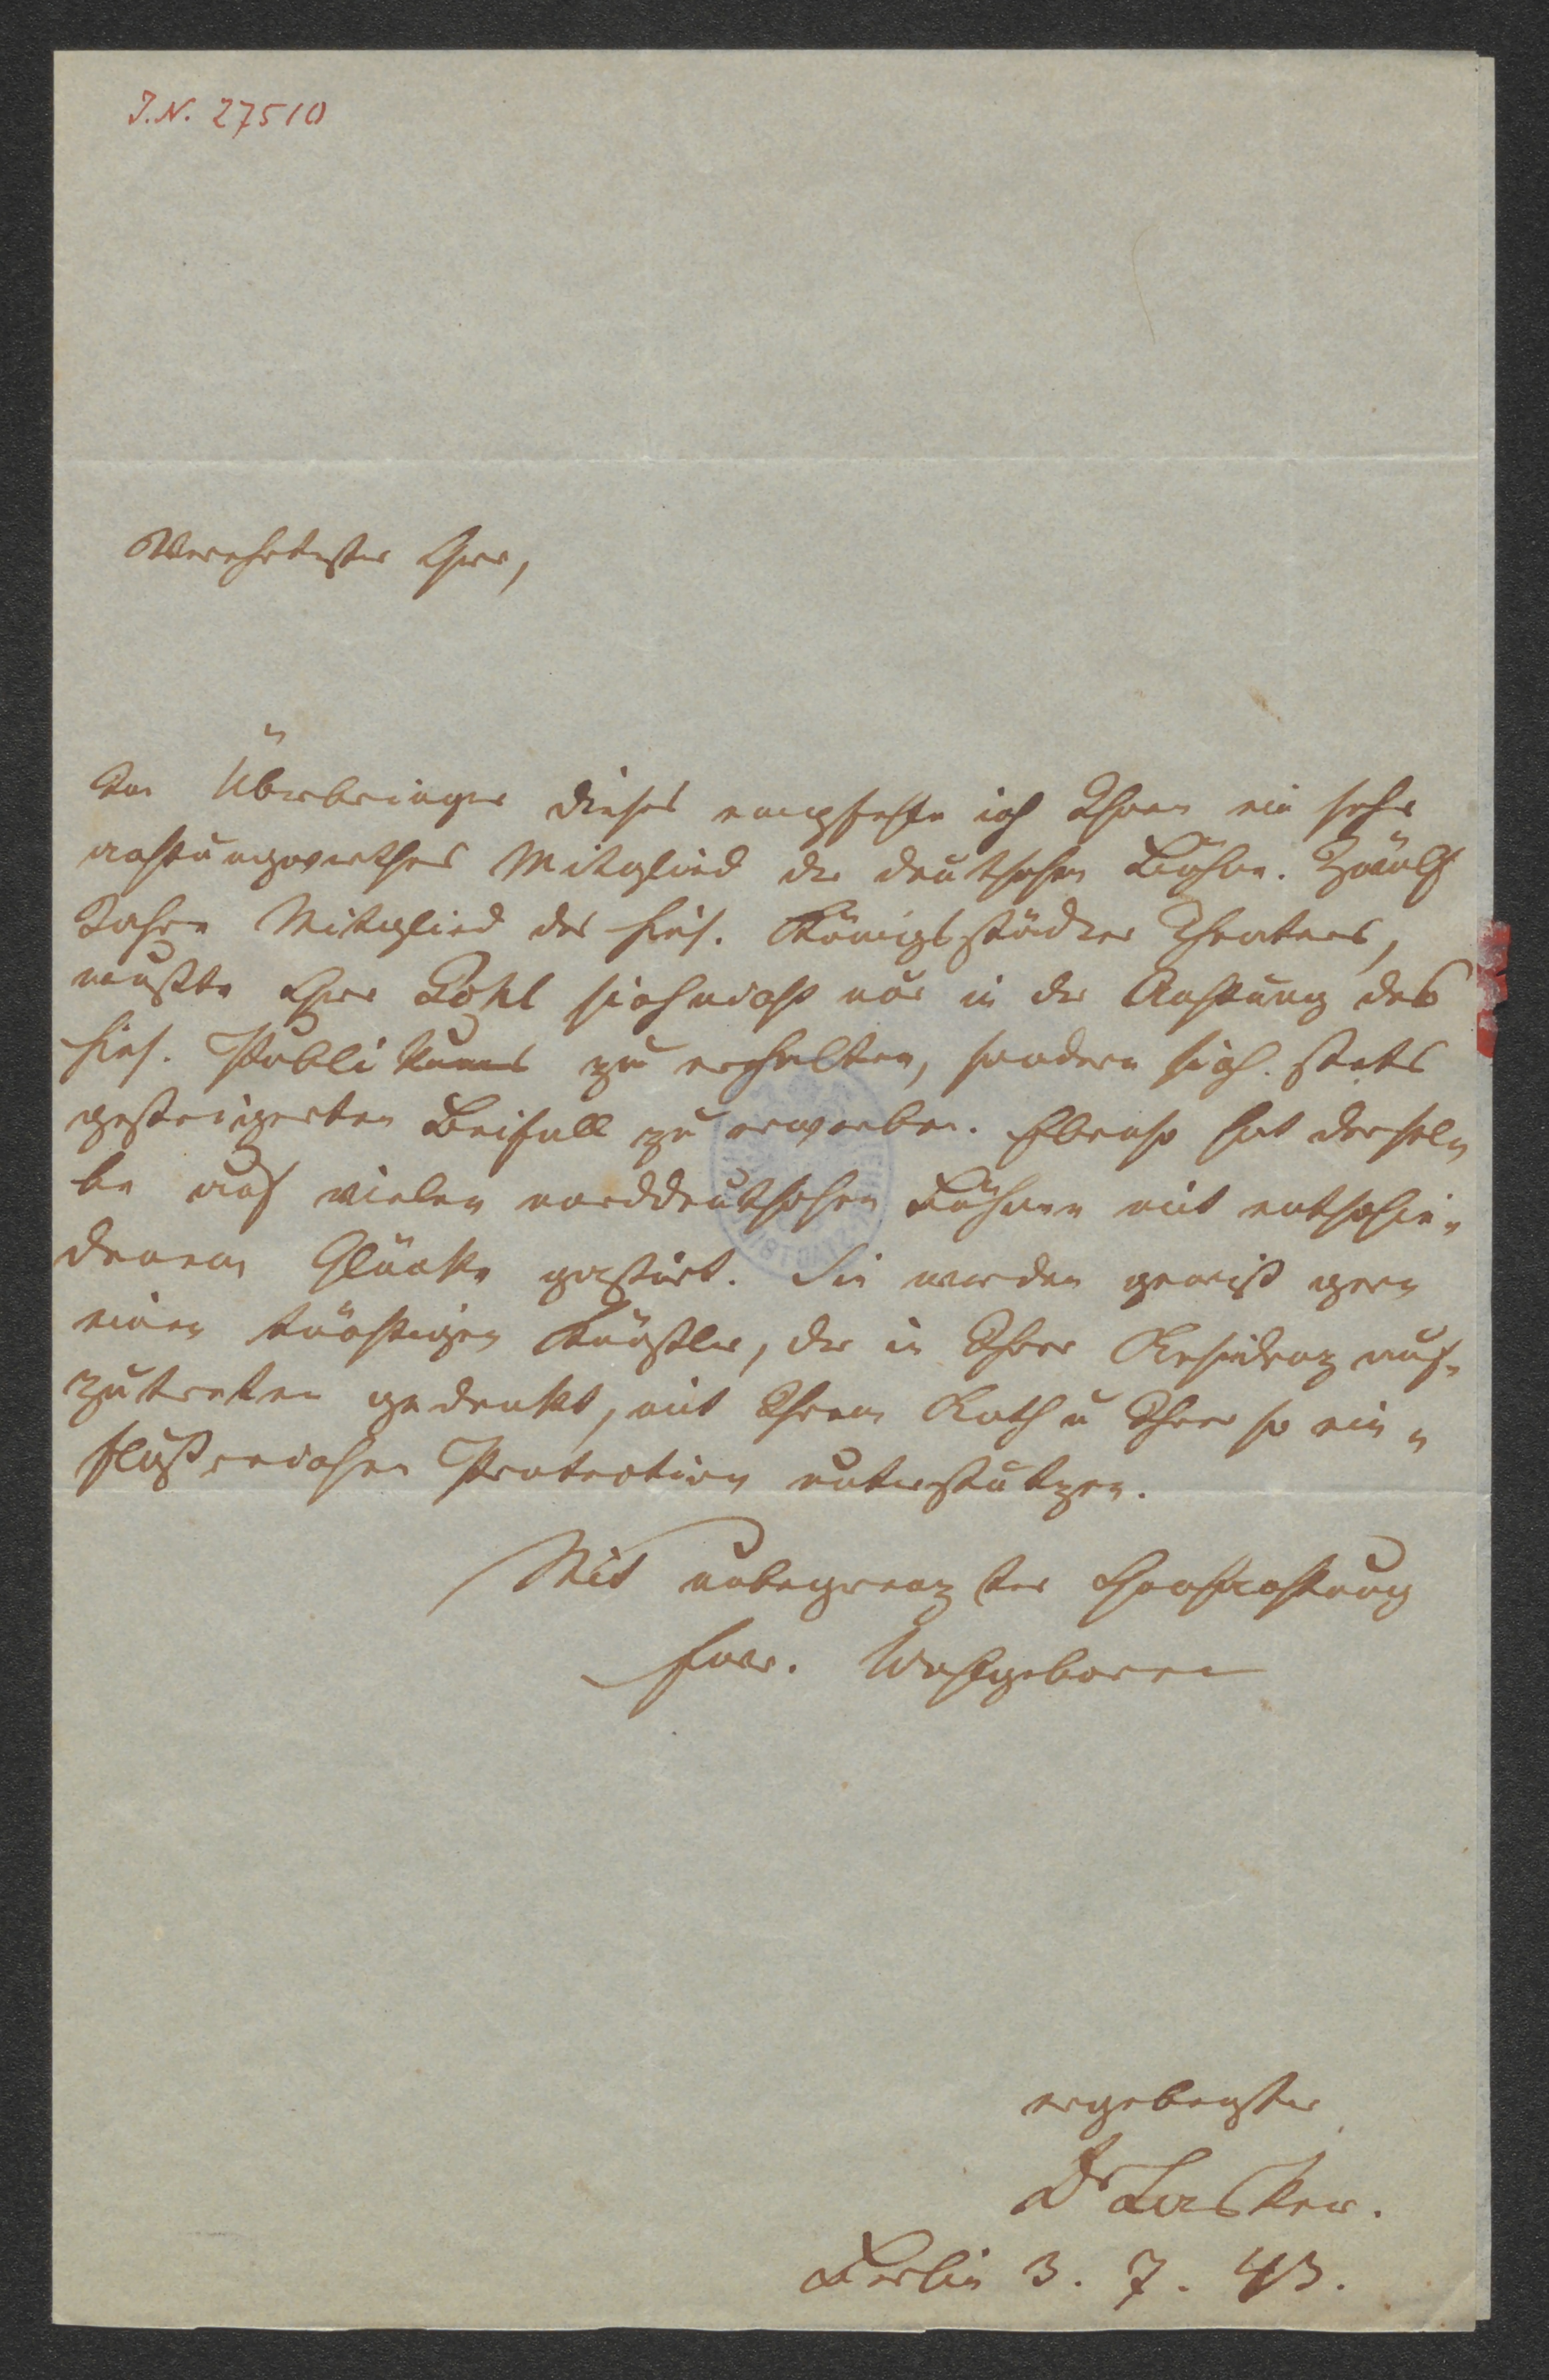 J.N. 27510
Verehrtester Herr,
Im Überbringer dieses empfehle ich Ihnen ein sehr
achtungswerthes Mitglied der deutschen Bühne. Zwölf
Jahre Mitglied des hies. Königsstädter Theaters,
wußte Herr Pohl sich nicht nur in der Achtung des
hies. Publikums zu erhalten, sondern sich stets
gesteigerten Beifall zu erwerben. Ebenso hat dersel-
be auf vielen norddeutschen Bühnen mit entschie-
denem Glücke gastirt. Sie werden gewiß gern
einen tüchtigen Künstler, der in Ihrer Residenz auf-
zutreten gedenkt, mit Ihrem Rath u Ihrer so ein-
flußreichen Protection unterstützen.
Mit unbegrenzter Hochachtung
Euer. Wohlgeboren
ergebenster
Dr Lasker.
Berlin 3. 7. 43.